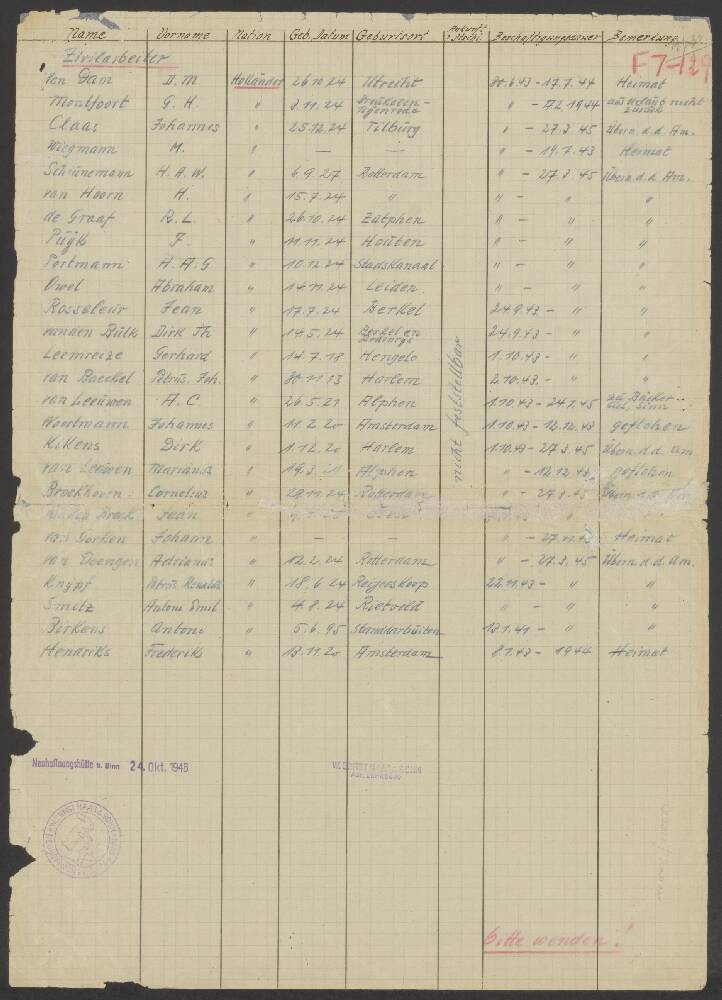 Name Vorname Nation Geb. Datum Geburtsort Beschäftigungsdauer Bemerkung
Zivilarbeiter F7-129
van Dam D. M. Holländer 26.10.24 Utrecht 30.6.43 - 17.7.44 Heimat
Montfoort G. H. " 3.11.24 " - 17.2.1944 aus Urlaub nicht zurück
Claas Johannes " 25.12.24 Tilburg " - 27.3.45 Übern. d. d. Am.
Wiegmann M. " — — " - 19.7.43 Heimat
Schünemann H. A. W. " 6.9.27 Rotterdam " - 27.3.45 Übern. d. d. Am.
van Hoorn H. " 15.7.24 " " - " "
de Graaf R. L. " 26.10.24 Zutphen " - " "
Püyk F. " 11.11.24 Houten " - " "
Portmann H. A. G " 10.12.24 Stadskanaal " - " "
Owel Abraham " 14.11.24 Leiden " - " "
Rosseleur Jean " 17.7.24 Berkel 24.9.43 - " "
van den Bulk Dirk Th " 14.5.24 24.9.43 - " "
Leemreize Gerhard " 14.7.18 Hengelo 1.10.43 - " "
van Baeckel Petrus. Joh. " 30.11.13 Harlem 2.10.43. - " "
van Leeuwen A. C " 26.5.21 Alphen 1.10.43 - 24.1.45
Woortmann Johannes " 11.2.20 Amsterdam 1.10.43 - 12.12.43 geflohen
Kikens Dirk " 1.12.20 Harlem 1.10.43 - 27.3.45 Übern. d. d. Am.
van Leeuwen Marianus " Alphen " - 12.12.43 geflohen
Broekhoven Cornelius " 29.11.24 Rotterdam " - 27.3.45
Jean "
van Gorken Johann " — — Heimat
van Doengen Adrianus " 12.2.24 Rotterdam " - 27.3.45 Übern. d. d. Am.
Knypf " 18.6.24 Reijerskoop 22.11.43 - " "
Smelz Antoni Emil " 4.8.24 Rietveld " - " "
Birkens Antoni " 5.6.95 Standdarbuiten 13.1.41 - " "
Hendriks Frederik " 13.11.20 Amsterdam 8.1.43 - 1944 Heimat
nicht feststellbar
Neuhoffnungshütte b. Sinn 24. Okt. 1946
Bitte wenden!